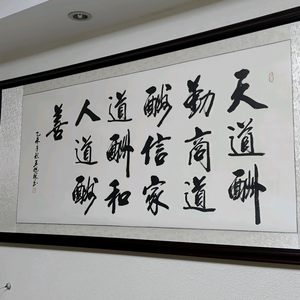 天道酬
勤商道
酬信家
道酬和
人道酬
善